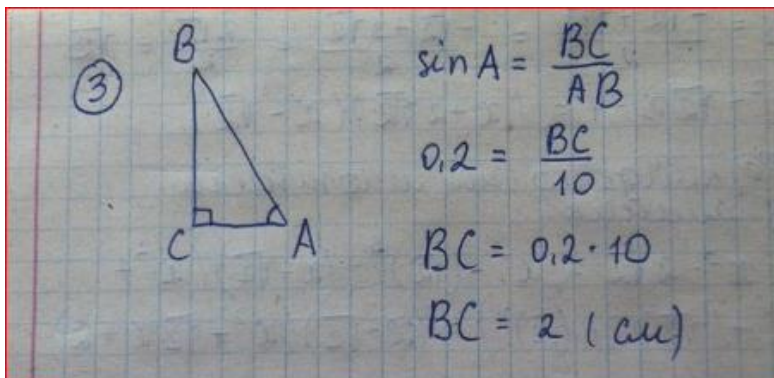 3
B
C
A
sin A = BC/AB
0,2 = BC/10
BC = 0,2 · 10
BC = 2 (см)